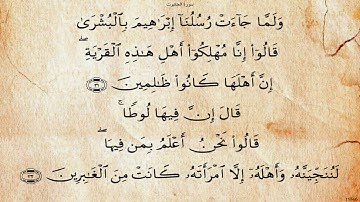 سورة العنكبوت
وَلَمَّا جَآءَتْ رُسُلُنَآ إِبْرَٰهِيمَ بِٱلْبُشْرَىٰ
قَالُوٓا۟ إِنَّا مُهْلِكُوٓا۟ أَهْلِ هَـٰذِهِ ٱلْقَرْيَةِ ۖ
إِنَّ أَهْلَهَا كَانُوا۟ ظَـٰلِمِينَ ﴿٣١﴾
قَالَ إِنَّ فِيهَا لُوطًا ۚ
قَالُوا۟ نَحْنُ أَعْلَمُ بِمَن فِيهَا ۖ
لَنُنَجِّيَنَّهُۥ وَأَهْلَهُۥٓ إِلَّا ٱمْرَأَتَهُۥ كَانَتْ مِنَ ٱلْغَـٰبِرِينَ ﴿٣٢﴾